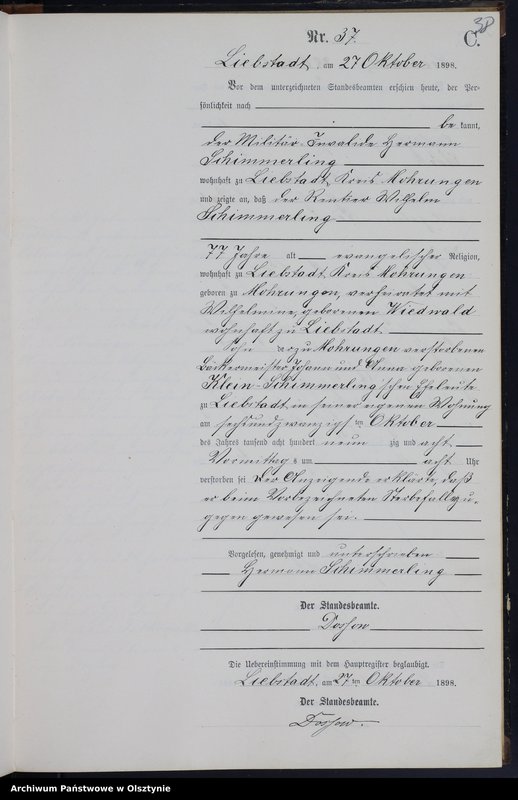 38
Nr. 37.
C.
Liebstadt, am 27 Oktober 1898.
Vor dem unterzeichneten Standesbeamten erschien heute, der Per-
sönlichkeit nach
be kannt,
der Militär-Invalide Hermann
Schimmerling
wohnhaft zu Liebstadt, Kreis Mohrungen
und zeigte an, daß der Rentier Wilhelm
Schimmerling
77 Jahre alt evangelischer Religion,
wohnhaft zu Liebstadt, Kreis Mohrungen
geboren zu Mohrungen, verheiratet mit
Wilhelmine, geborenen Wiedwald
wohnhaft zu Liebstadt
Sohn der zu Mohrungen verstorbenen
Bäckermeister Johann und Anna geborenen
Klein-Schimmerling'schen Eheleute
zu Liebstadt in seiner eigenen Wohnung
am sechsundzwanzigsten Oktober
des Jahres tausend acht hundert neun zig und acht
Vormittags um acht Uhr
verstorben sei. Der Anzeigende erklärte, daß
er beim vorbezeichneten Sterbefalle zu-
gegen gewesen sei.
Vorgelesen, genehmigt und unterschrieben
Hermann Schimmerling
Der Standesbeamte.
Dossow
Die Uebereinstimmung mit dem Hauptregister beglaubigt.
Liebstadt, am 27ten Oktober 1898.
Der Standesbeamte.
Dossow.
Archiwum Państwowe w Olsztynie